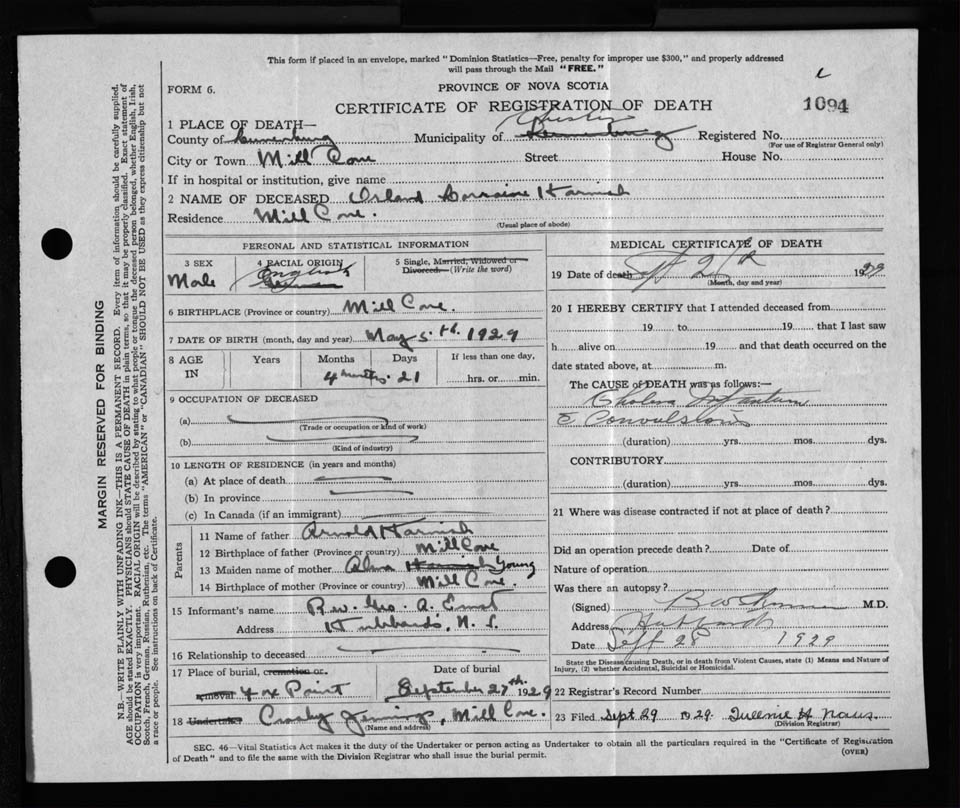 This form if placed in an envelope, marked "Dominion Statistics—Free, penalty for improper use $300," and properly addressed
will pass through the Mail "FREE."
FORM 6.
PROVINCE OF NOVA SCOTIA
CERTIFICATE OF REGISTRATION OF DEATH
1094
1 PLACE OF DEATH—
Chester
County of Lunenburg Municipality of Lunenburg Registered No.
(For use of Registrar General only)
City or Town Mill Cove Street House No.
If in hospital or institution, give name
2 NAME OF DECEASED Orland Lorraine Harnish
Residence Mill Cove.
(Usual place of abode)
PERSONAL AND STATISTICAL INFORMATION
3 SEX 4 RACIAL ORIGIN 5 Single, Married, Widowed or
Divorced— (Write the word)
Male English
German
6 BIRTHPLACE (Province or country) Mill Cove.
7 DATE OF BIRTH (month, day and year) May 5th. 1929
8 AGE IN Years Months Days If less than one day,
4 months. 21 hrs. or min.
9 OCCUPATION OF DECEASED
(a)
(Trade or occupation or kind of work)
(b)
(Kind of industry)
10 LENGTH OF RESIDENCE (in years and months)
(a) At place of death
(b) In province
(c) In Canada (if an immigrant)
Parents
11 Name of father Arnold Harnish
12 Birthplace of father (Province or country) Mill Cove
13 Maiden name of mother Alma Harnish Young
14 Birthplace of mother (Province or country) Mill Cove.
15 Informant's name Rev. Geo. A. Ernst
Address Hubbards, N. S.
16 Relationship to deceased
17 Place of burial, cremation or removal Fox Point Date of burial September 27th. 1929
18 Undertaker Crosby Jennings, Mill Cove.
(Name and address)
MEDICAL CERTIFICATE OF DEATH
19 Date of death 1929
(Month, day and year)
20 I HEREBY CERTIFY that I attended deceased from
19 to 19 that I last saw
h alive on 19 and that death occurred on the
date stated above, at m.
The CAUSE of DEATH was as follows:—
Cholera Infantum
Convulsions
(duration) yrs. mos. dys.
CONTRIBUTORY
(duration) yrs. mos. dys.
21 Where was disease contracted if not at place of death?
Did an operation precede death? Date of
Nature of operation
Was there an autopsy?
(Signed) M.D.
Address Hubbards
Date Sept 28 1929
State the Disease causing Death, or in death from Violent Causes, state (1) Means and Nature of
Injury, (2) whether Accidental, Suicidal or Homicidal.
22 Registrar's Record Number
23 Filed Sept. 29 1929.
(Division Registrar)
SEC. 46—Vital Statistics Act makes it the duty of the Undertaker or person acting as Undertaker to obtain all the particulars required in the "Certificate of Registration
of Death" and to file the same with the Division Registrar who shall issue the burial permit. (OVER)
MARGIN RESERVED FOR BINDING
N.B.—WRITE PLAINLY WITH UNFADING INK—THIS IS A PERMANENT RECORD. Every item of information should be carefully supplied.
AGE should be stated EXACTLY. PHYSICIANS should STATE CAUSE OF DEATH in plain terms, so that it may be properly classified. Exact statement of
OCCUPATION is very important. RACIAL ORIGIN will be described by stating to what people or tongue the deceased person belonged, whether English, Irish,
Scotch, French, German, Russian, Ruthenian, etc. The terms "AMERICAN" or "CANADIAN" SHOULD NOT BE USED as they express citizenship but not
a race or people. See instructions on back of Certificate.